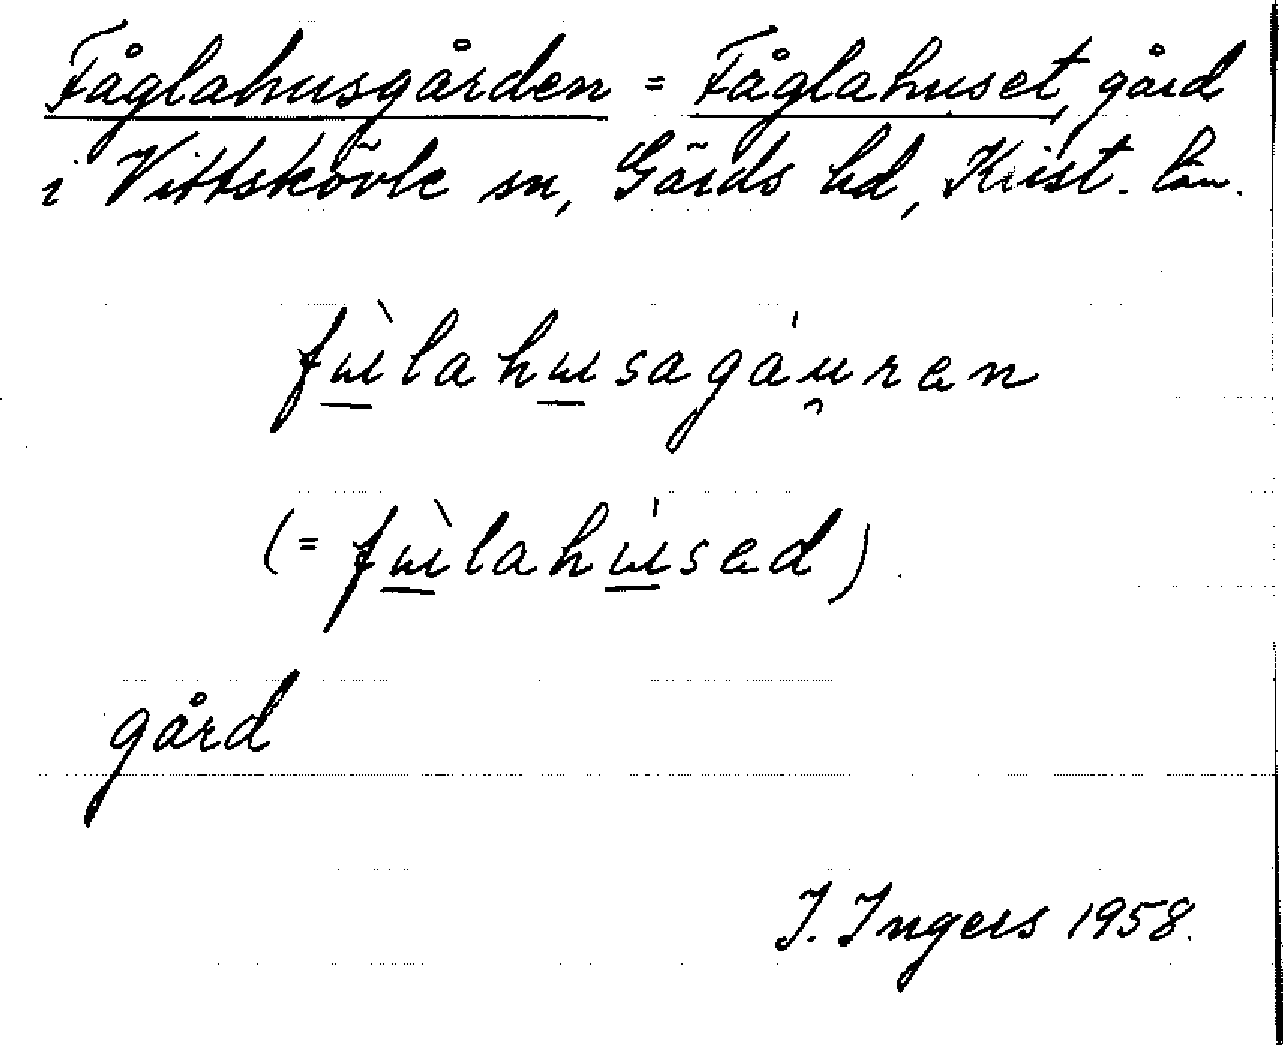 Fåglahusgården = Fåglahuset, gård
i Vittskövle sn, Gärds hd, Krist. län.
fɯ̀lahɯsagáu̯ran
(= fɯ̀lahɯ́sad).
gård
I. Ingers 1958.